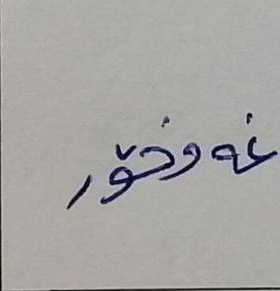 غەوخۆر